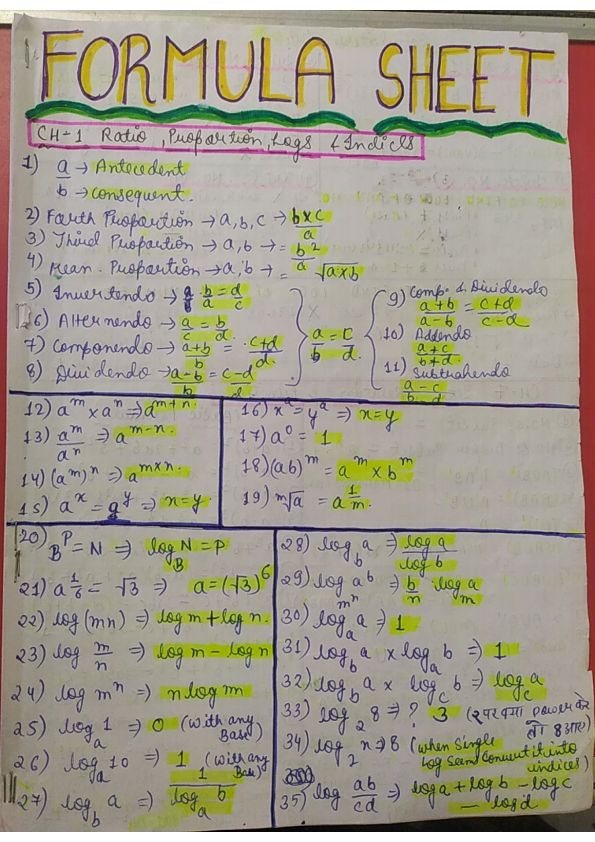 FORMULA SHEET
CH-1 Ratio, Proportion, Logs & Indices
1) a/b → Antecedent
→ consequent.
2) Forth Proportion → a, b, c → b×c/a
3) Third Proportion → a, b → = b²/a
4) Mean. Proportion → a, b → = √a×b
5) Invertendo → b/a = d/c
6) Alternendo → a/c = b/d.
7) Componendo → a+b/b = c+d/d
8) Dividendo → a-b/b = c-d/d.
a/b = c/d.
9) Comp. & Dividendo
a+b/a-b = c+d/c-d
10) Addendo
a+c/b+d.
11) Subtrahendo
a-c/b-d
12) a^m × a^n ⇒ a^m+n.
13) a^m/a^n ⇒ a^m-n.
14) (a^m)^n ⇒ a^m×n.
15) a^x = a^y ⇒ x=y.
16) x^a = y^a ⇒ x=y
17) a^0 = 1
18) (ab)^m = a^m × b^m
19) ^m√a = a^1/m.
20) B^P = N ⇒ log_B N = P
21) a^1/6 = √3 ⇒ a=(√3)^6
22) log(mn) ⇒ logm+logn.
23) log m/n ⇒ logm-logn
24) log m^n ⇒ nlogm
25) log_a 1 ⇒ 0 (with any
Base)
26) log_a 10 ⇒ 1 (with any
Base)
27) log_b a ⇒ 1/log_a b
28) log_b a ⇒ log a/log b
29) log_m^n a^b ⇒ b/n log_m a
30) log_a a ⇒ 1
31) log_b a × log_a b ⇒ 1
32) log_b a × log_c b ⇒ log_c a
33) log_2 8 ⇒ ? 3 (2 पर क्या power के
तो 8 आए)
34) log_2 n ⇒ 8 (when Single
log seen, convert it into
indices)
35) log ab/cd ⇒ loga+logb-logc
- logd